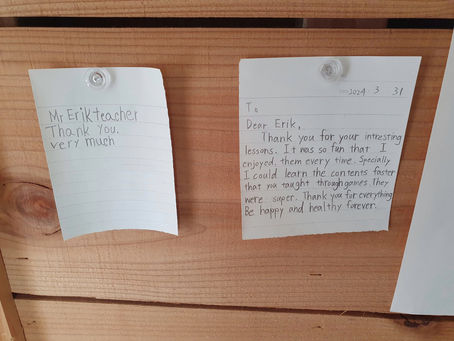 Mr Erik teacher
Thank you.
very much
2024 3 31
To
Dear Erik,
Thank you for your intresting
lessons. It was so fun that I
enjoyed them every time. Specially
I could learn the contents faster
that you taught through games They
were super. Thank you for everything
Be happy and healthy forever.